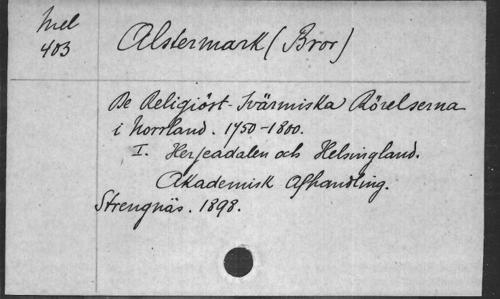 Mel
403
Alstermark (Bror)
De Religiöst-Svärmiska Rörelserna
i Norrland. 1750-1800.
I. Herjeadalen och Helsingland.
Akademisk Afhandling.
Strengnäs. 1898.